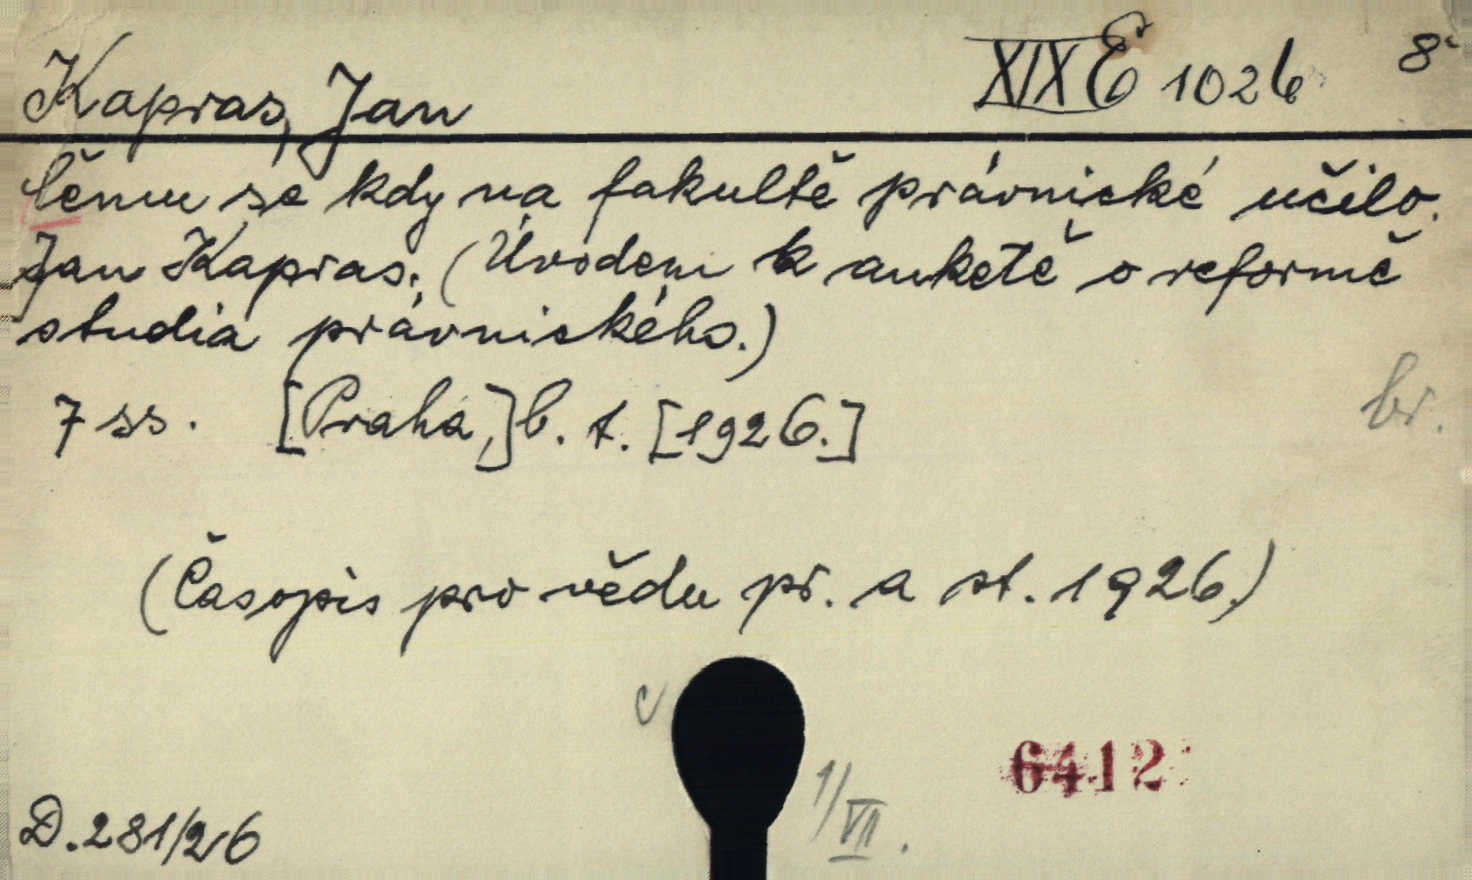 Kapras, Jan
XIX E 1026 8°
Čemu se kdy na fakultě právnické učilo.
Jan Kapras. (Úvodem k anketě o reformě
studia právnického.)
7 ss. [Praha,] b. t. [1926.]
br.
(Časopis pro vědu pr. a st. 1926.)
c
6412
1/VII.
D.281/26